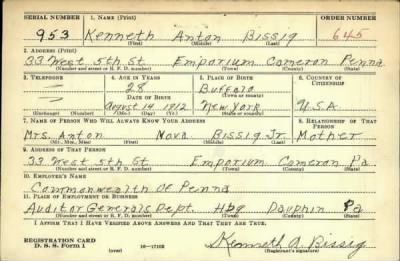 SERIAL NUMBER 1. NAME (Print) ORDER NUMBER
953 Kenneth Anton Bissig 645
(First) (Middle) (Last)
2. ADDRESS (Print)
33 West 5th St Emporium Cameron Penna
(Number and street or R. F. D. number) (Town) (County) (State)
3. TELEPHONE 4. AGE IN YEARS 5. PLACE OF BIRTH 6. COUNTRY OF CITIZENSHIP
— 28 Buffalo
DATE OF BIRTH (Town or county)
— August 14 1912 New York U.S.A.
(Exchange) (Number) (Mo.) (Day) (Yr.) (State or country)
7. NAME OF PERSON WHO WILL ALWAYS KNOW YOUR ADDRESS 8. RELATIONSHIP OF THAT PERSON
Mrs. Anton Nova Bissig Jr. Mother
(Mr., Mrs., Miss) (First) (Middle) (Last)
9. ADDRESS OF THAT PERSON
33 West 5th St Emporium Cameron Pa
(Number and street or R. F. D. number) (Town) (County) (State)
10. EMPLOYER'S NAME
Commonwealth Of Penna
11. PLACE OF EMPLOYMENT OR BUSINESS
Auditor Generals Dept. Hbg Dauphin Pa
(Number and street or R. F. D. number) (Town) (County) (State)
I AFFIRM THAT I HAVE VERIFIED ABOVE ANSWERS AND THAT THEY ARE TRUE.
REGISTRATION CARD
D. S. S. Form 1 (over) 16—17105 Kenneth A Bissig
(Registrant's signature)